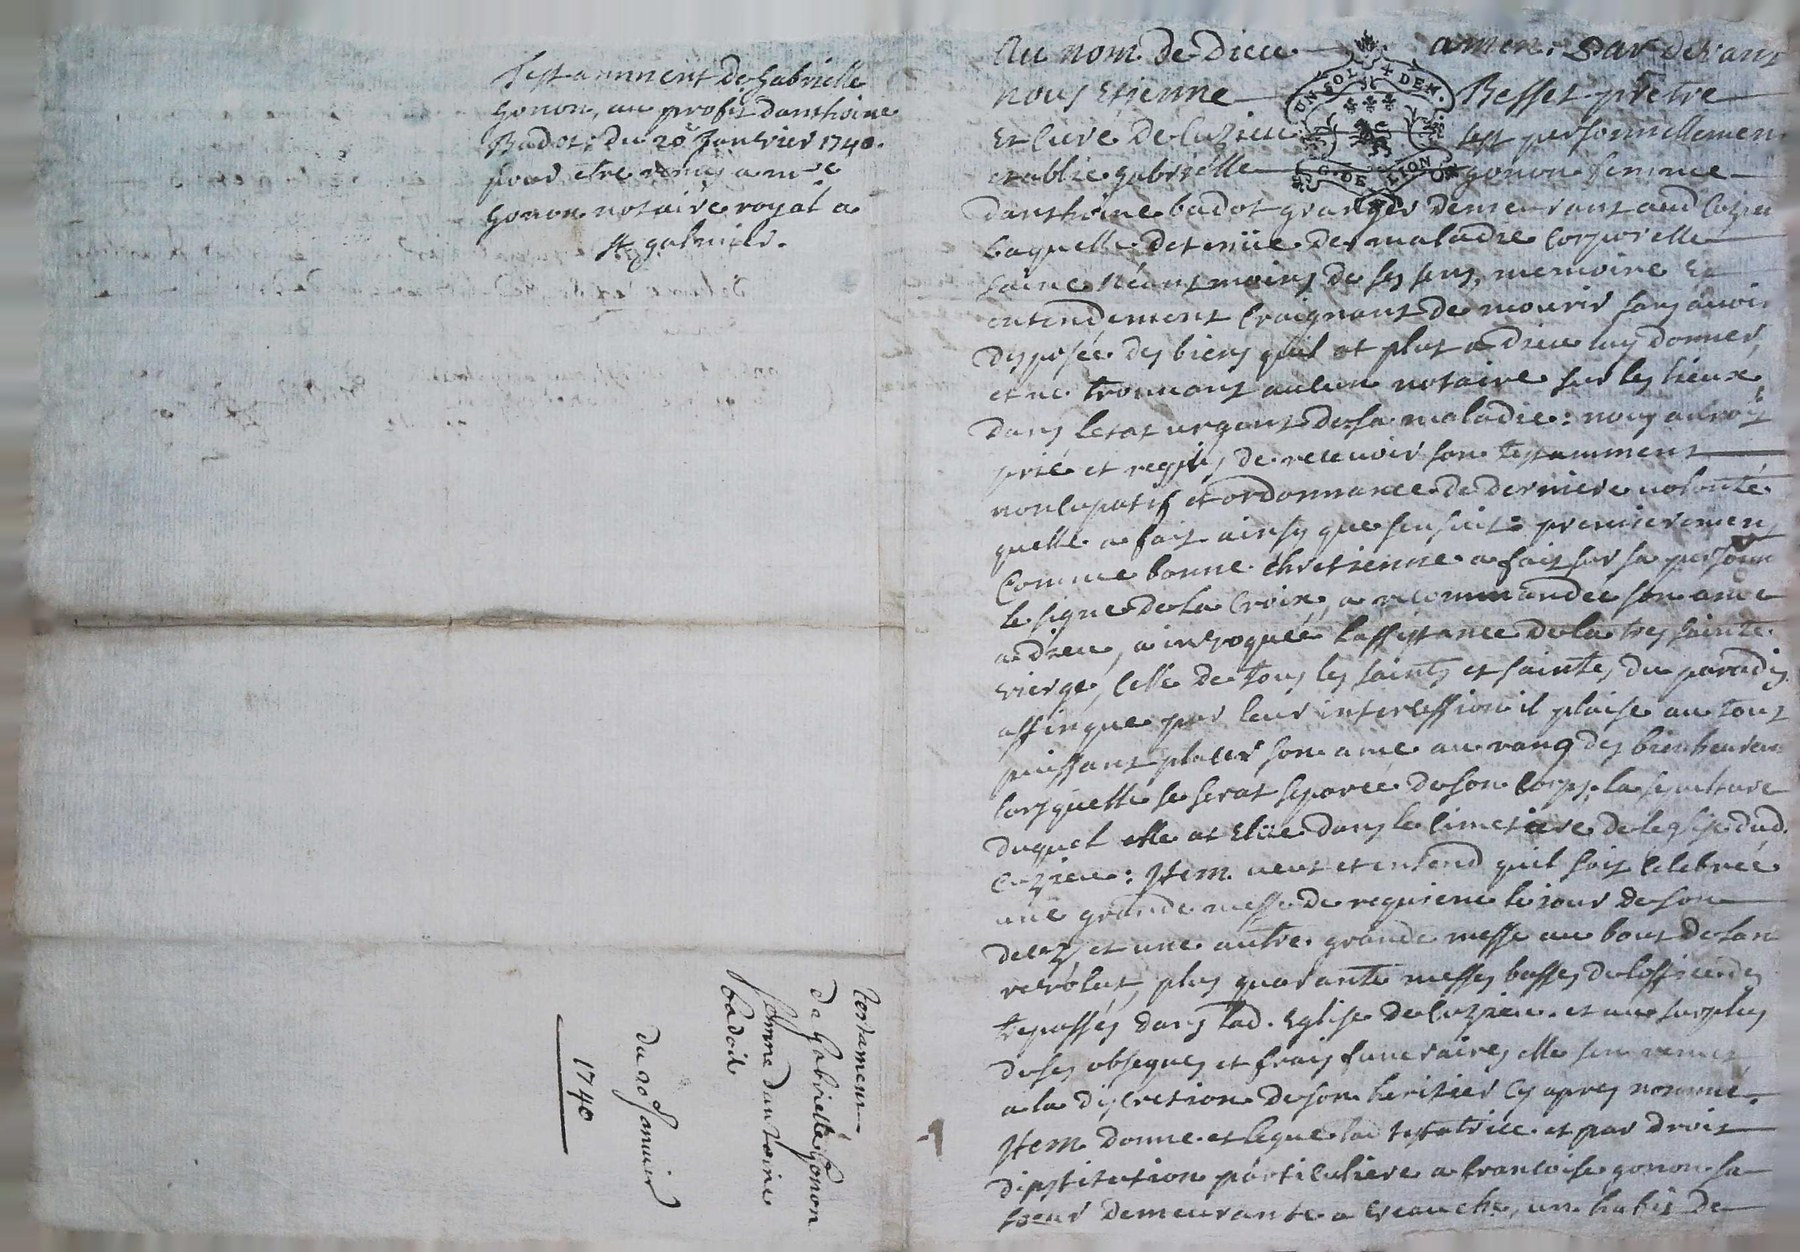 Testamment de Gabrielle
Gonon, au profit danthoine
Badot, du 20e Janvier 1740.
pour etre remis a me
Gonon notaire royal a
St galmier.
Testament
de Gabrielle Gonon
femme dantoine
badoil
du 20 Janvier
1740
Au nom de Dieu amen. Par devant
nous Etienne Besset prêtre
Et Curé de Cuzieu sest personnellement
etablie gabrielle gonon femme
danthoine badot granger demeurant aud Cuzieu
Laquelle detenüe de maladie Corporelle
saine néantmoins de ses sens, memoire Et
entendement Craignant de mourir sans avoir
disposée des biens quil at plut a dieu luy donner,
et ne trouvant aucun notaire sur les lieux
dans letat urgent de sa maladie: nous auroit
prié et requis de recevoir son testamment
noncupatif et ordonnance de derniere volonté
quelle a fait ainsy que sensuit: premierement
Comme bonne chretienne a fait sur sa personne
le signe de la Croix, a recommandée son ame
a dieu, a invoquée lassistance de la tres sainte
vierge, Celle de tous les saints et saintes du paradis
affinque par leur intercession il plaise au tout
puissant placer son ame au rang des bienheureux
lorsquelle se serat separée de son Corps, la sepulture
duquel elle at Elüe dans le Cimetiere de leglise dud.
Cuzieu: Item veut et entend quil soit Celebrée
une grande messe de requiem le jour de son
decez et une autre grande messe au bout de lan
revolut, plus quarante messes basses de loffice des
trepassés dans lad. Eglise de Cuzieu. et au surplus
de ses obseques et frais funeraires elle sen remet
a la discretion de son heritier Cy apres nommé.
Item donne et legue la testatrice et par droit
dinstitution particuliere a francoise gonon sa
soeur demeurante a Veauche, un habit de
UN SOL 4 DEM.
G. DE LION